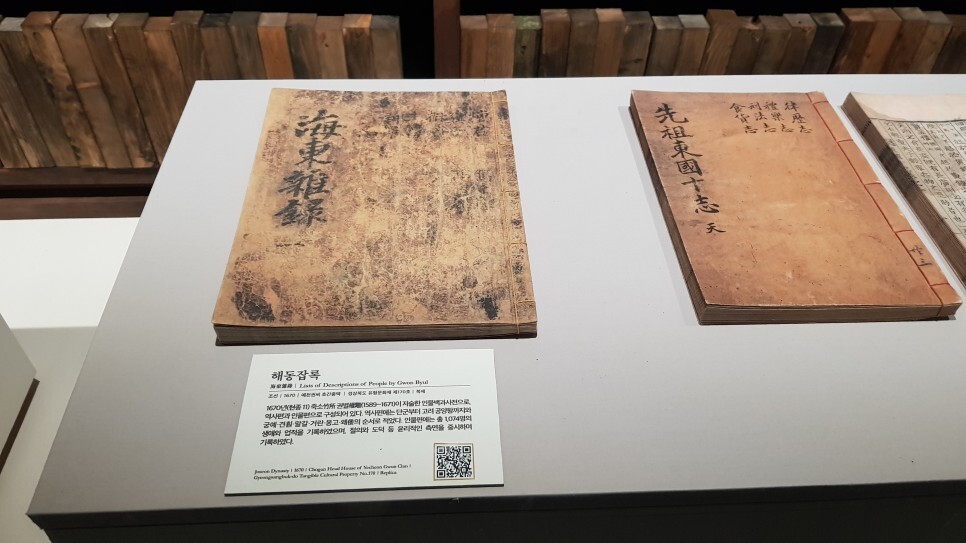 海東雜錄
先祖東國十志 天
律歷志
禮樂志
刑法志
食貨志
共三
해동잡록
海東雜錄 | Lists of Descriptions of People by Gwon Byul
조선 | 1670 | 예천권씨 초간종택 | 경상북도 유형문화재 제170호 | 복제
1670년(현종 11) 죽소竹所 권별權鼈(1589~1671)이 저술한 인물백과사전으로,
역사편과 인물편으로 구성되어 있다. 역사편에는 단군부터 고려 공양왕까지와
궁예·견훤·말갈·거란·몽고·왜倭의 순서로 적었다. 인물편에는 총 1,074명의
생애와 업적을 기록하였으며, 절의와 도덕 등 윤리적인 측면을 중시하여
기록하였다.
Joseon Dynasty | 1670 | Chogan Head House of Yecheon Gwon Clan |
Gyeongsangbuk-do Tangible Cultural Property No.170 | Replica